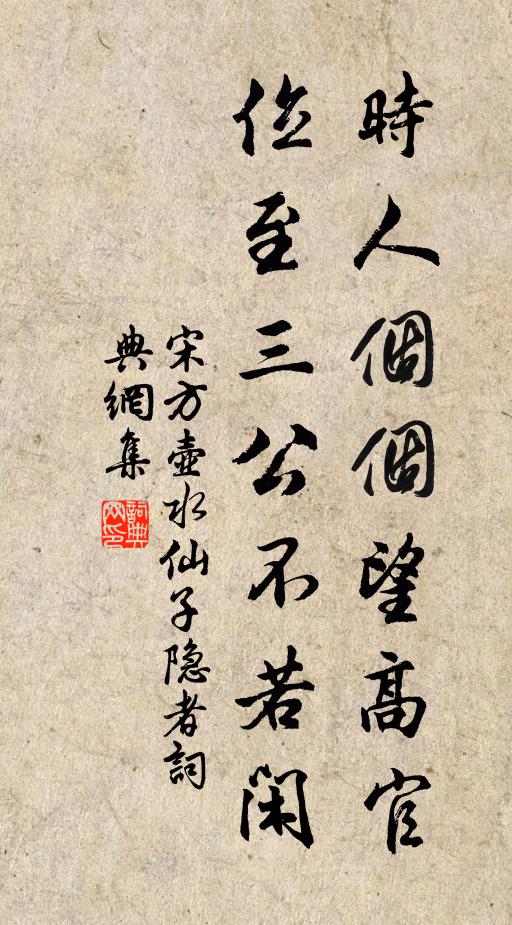 時人個個望高官
位至三公不若閑
宋方壺水仙子隐者詞
典網集
詞典網印